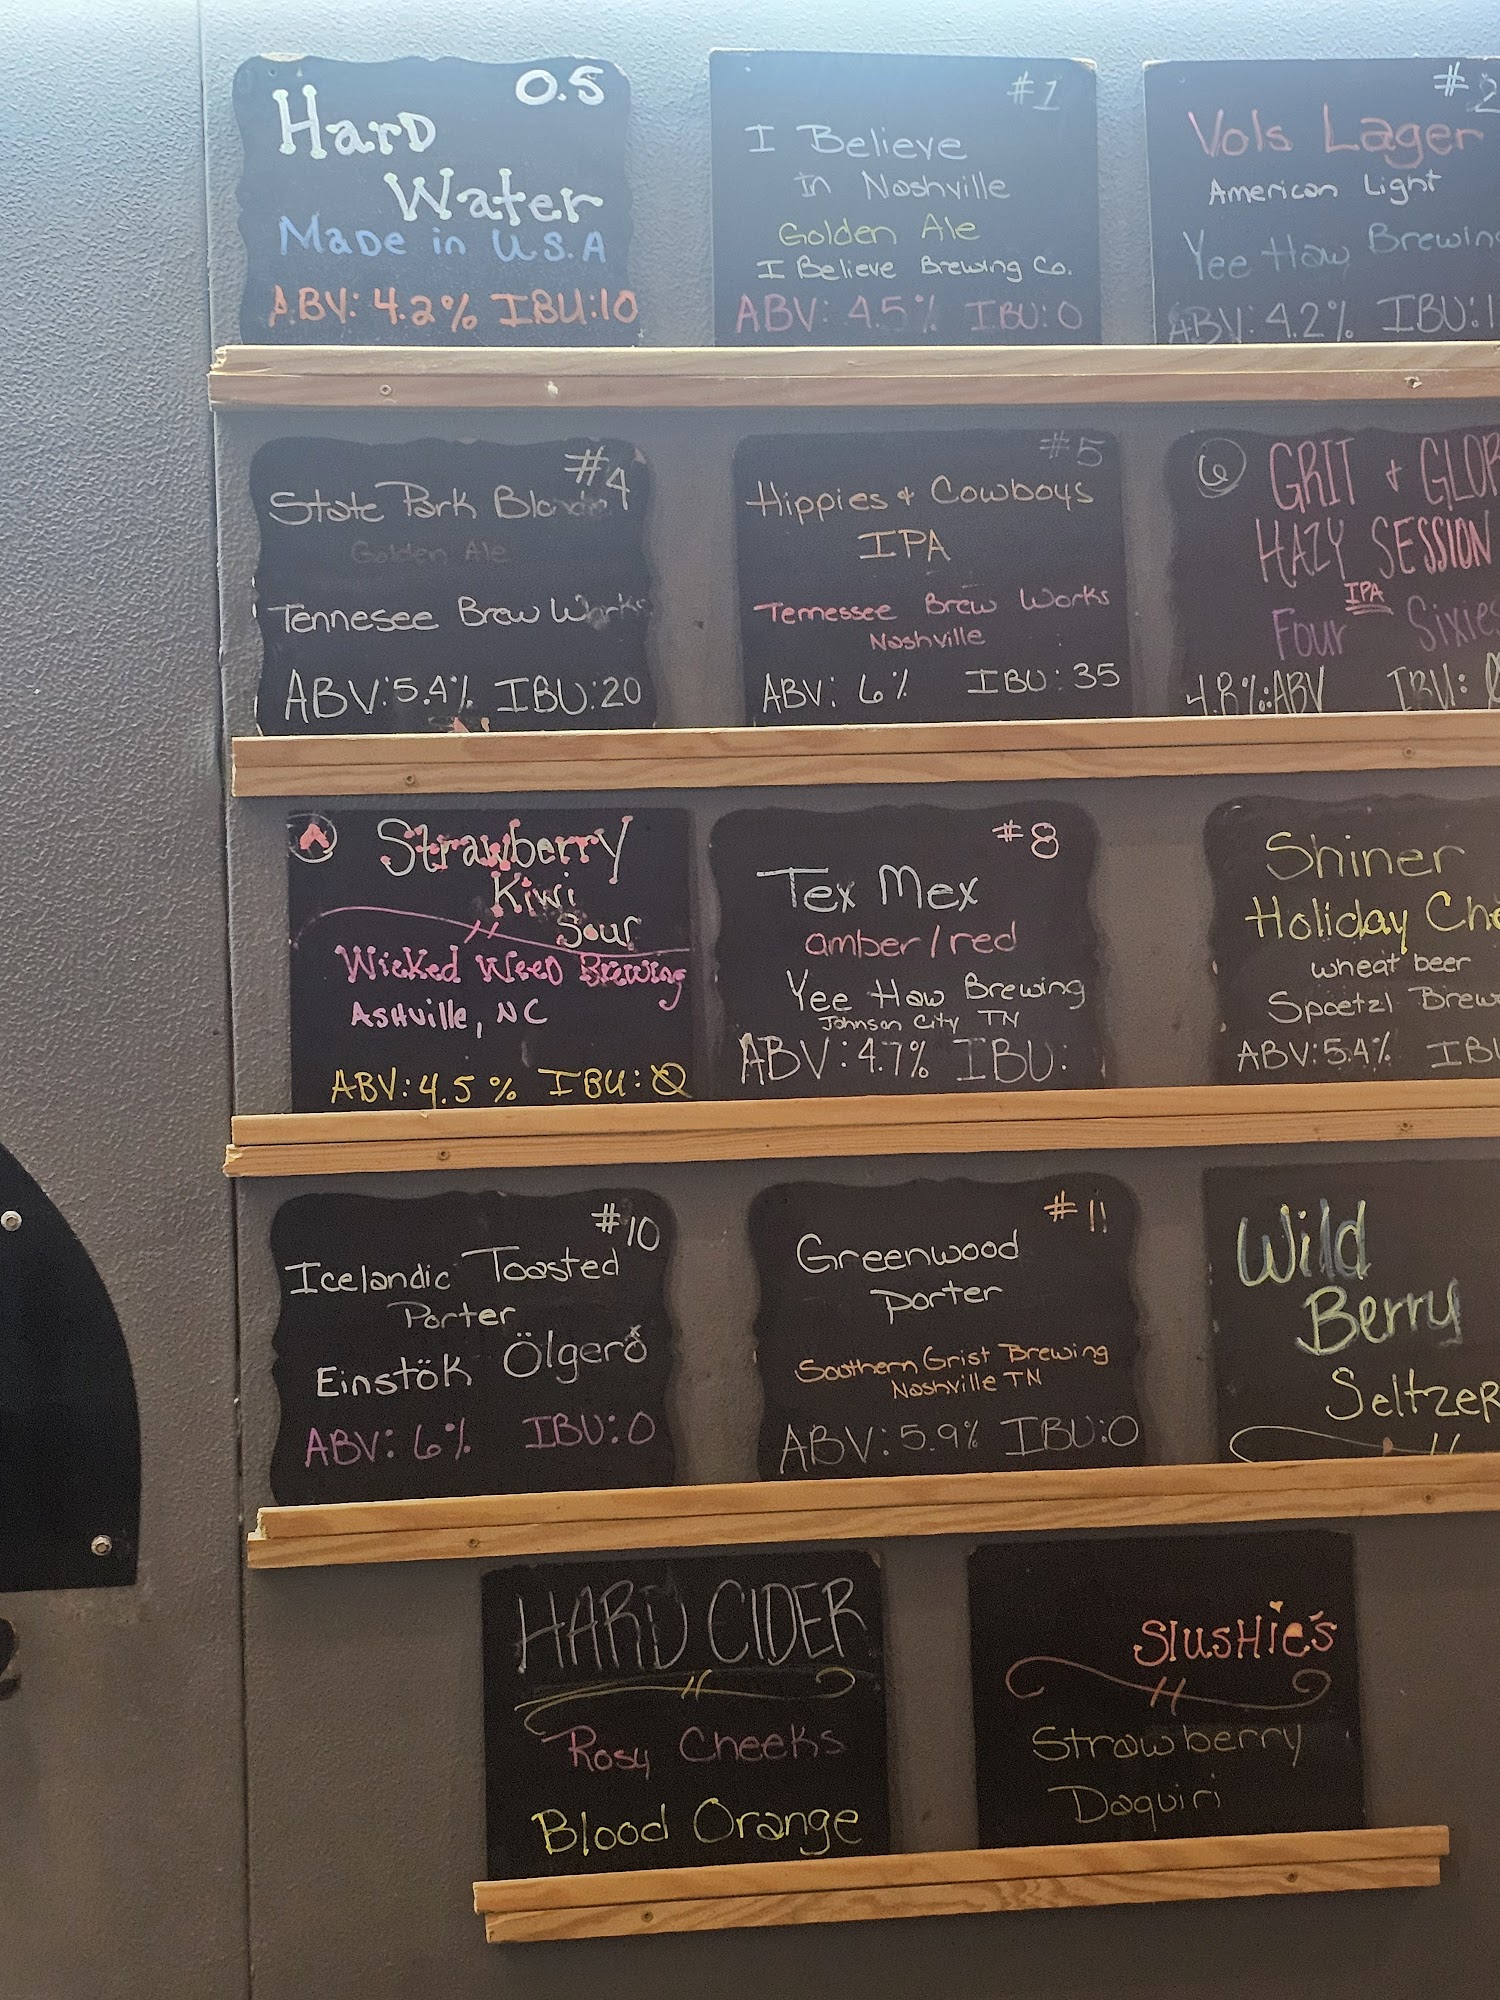 0.5
Hard
Water
Made in U.S.A
ABV: 4.2% IBU:10
#1
I Believe
In Nashville
Golden Ale
I Believe Brewing Co.
ABV: 4.5% IBU: 0
#2
Vols Lager
American Light
Yee Haw Brewing
ABV: 4.2% IBU:1
#4
State Park Blonde
Golden Ale
Tennesee Brew Works
ABV:5.4% IBU:20
#5
Hippies & Cowboys
IPA
Tennessee Brew Works
Nashville
ABV: 6% IBU: 35
6
GRIT & GLOR
HAZY SESSION
IPA
Four Sixies
4.8%:ABV IBU: 0
Strawberry
Kiwi
Sour
Wicked Weed Brewing
Ashville, NC
ABV: 4.5% IBU: 0
#8
Tex Mex
amber/red
Yee Haw Brewing
Johnson City TN
ABV:4.7% IBU:
Shiner
Holiday Che
wheat beer
Spoetzl Brew
ABV:5.4% IBU
#10
Icelandic Toasted
Porter
Einstök Ölgerð
ABV: 6% IBU:0
#11
Greenwood
Porter
Southern Grist Brewing
Nashville TN
ABV:5.9% IBU:0
Wild
Berry
Seltzer
HARD CIDER
Rosy Cheeks
Blood Orange
Slushie's
Strawberry
Daquiri